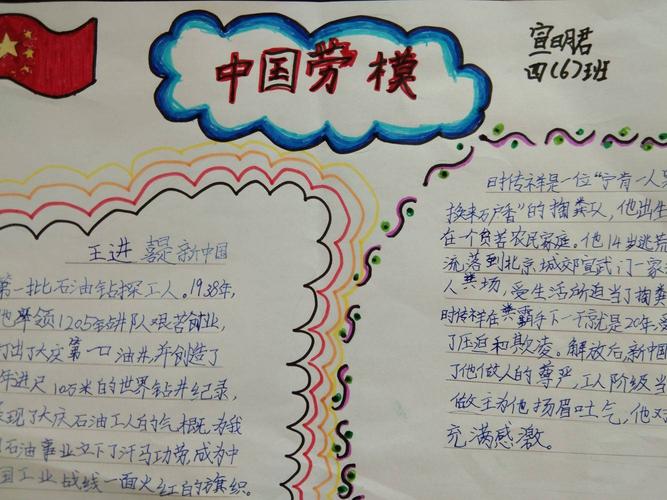 中国劳模
宣明君
四(6)班
王进 喜是新中国
第一批石油钻探工人。1938年,
他率领1205钻井队艰苦创业,
打出了大庆第一口油井,并创造了
年进尺10万米的世界钻井纪录,
展现了大庆石油工人的气概,为我
国石油事业立下了汗马功劳,成为中
国工业战线一面火红的旗织。
时传祥是一位“宁肯一人
换来万户香”的掏粪工人,他出生
在一个贫苦农民家庭。他14岁逃荒
流落到北京城郊宣武门一家
人粪场,受生活所迫当了掏粪
时传祥在粪霸手下一干就是20年,受
了压迫和欺凌。解放后,新中国
了他做人的尊严,工人阶级当
做主为他扬眉吐气,他对
充满感激。